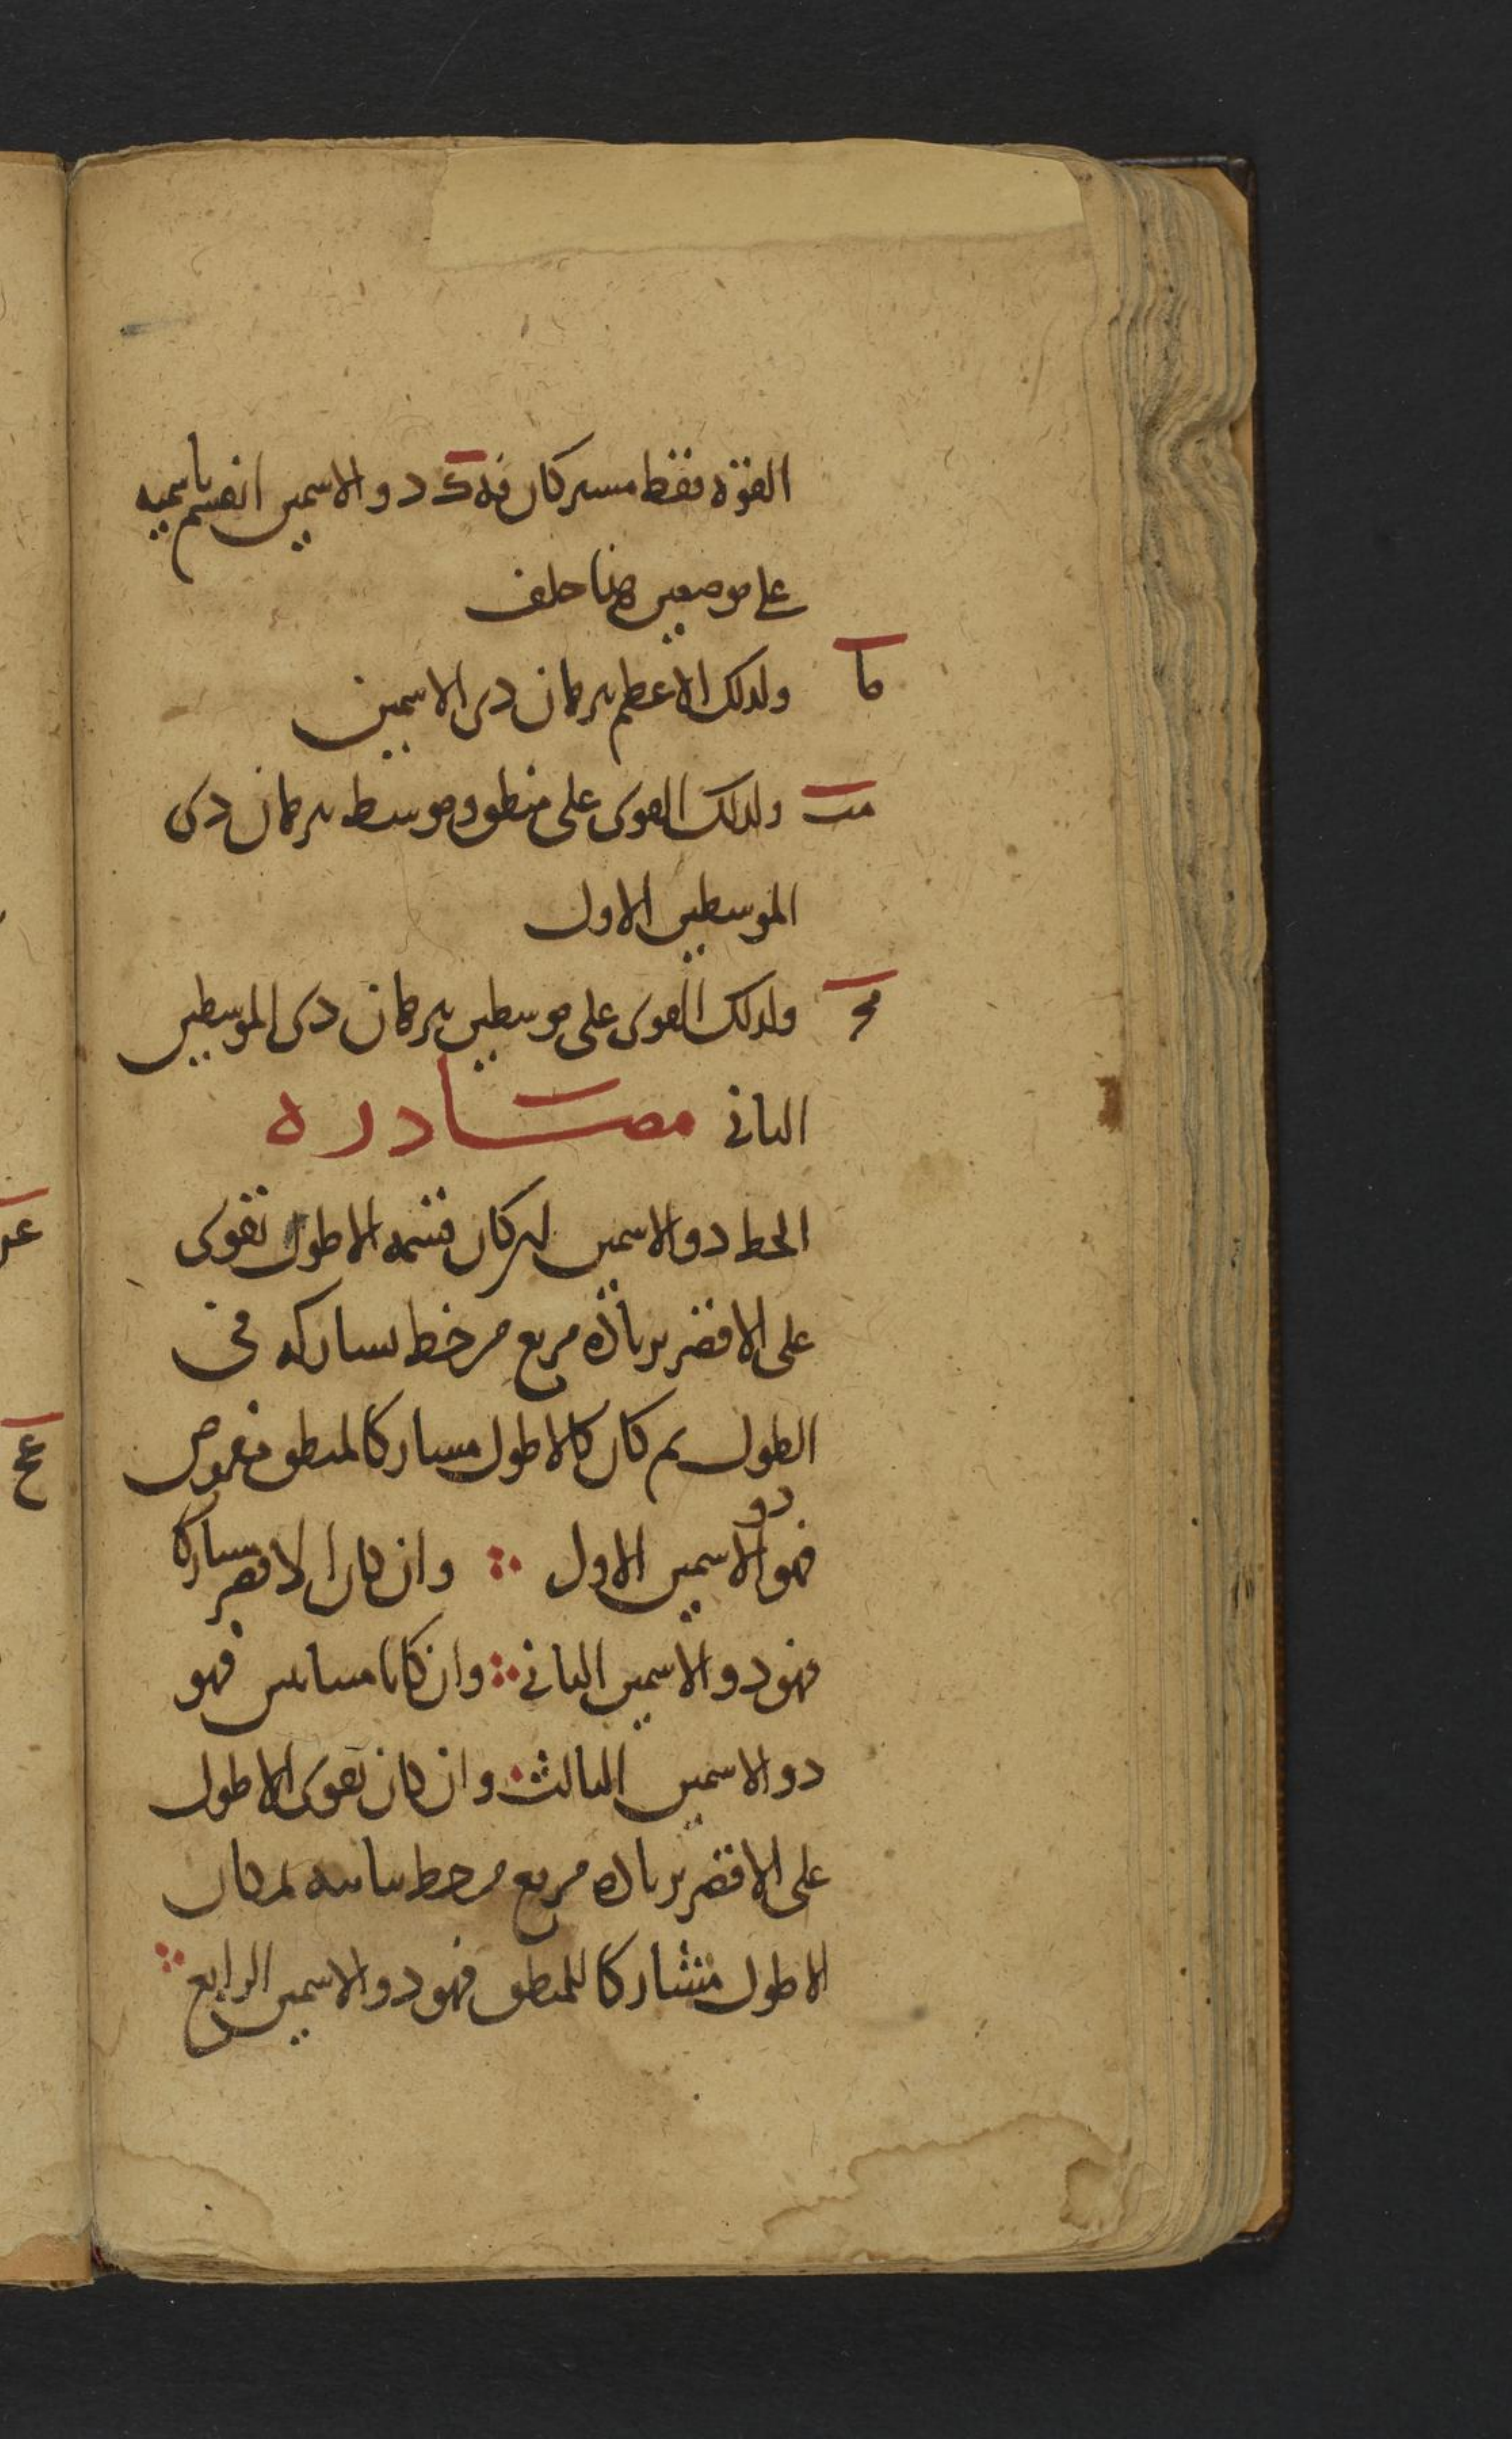 القوة فقط مشتركان فدك ذو الاسمين انقسم باسميه
على موضعين هذا خلف
ما ولذلك الاعظم برهان ذي الاسمين
مب ولذلك القوي على منطق وموسط برهان ذي
الموسطين الاول
مج ولذلك القوي على موسطين برهان ذي الموسطين
الثاني مصادره
الخط ذو الاسمين ان كان قسمه الاطول تقوى
على الاقصر بزيادة مربع من خط يشاركه في
الطول ثم كان الاطول مشاركا لمنطق مفروض
فهو ذو الاسمين الاول وان كان الاقصر يشاركه
فهو ذو الاسمين الثاني وان كانا متباينين فهو
ذو الاسمين الثالث وان كان تقوى الاطول
على الاقصر بزيادة مربع من خط يباينه ثم كان
الاطول مشاركا للمنطق فهو ذو الاسمين الرابع